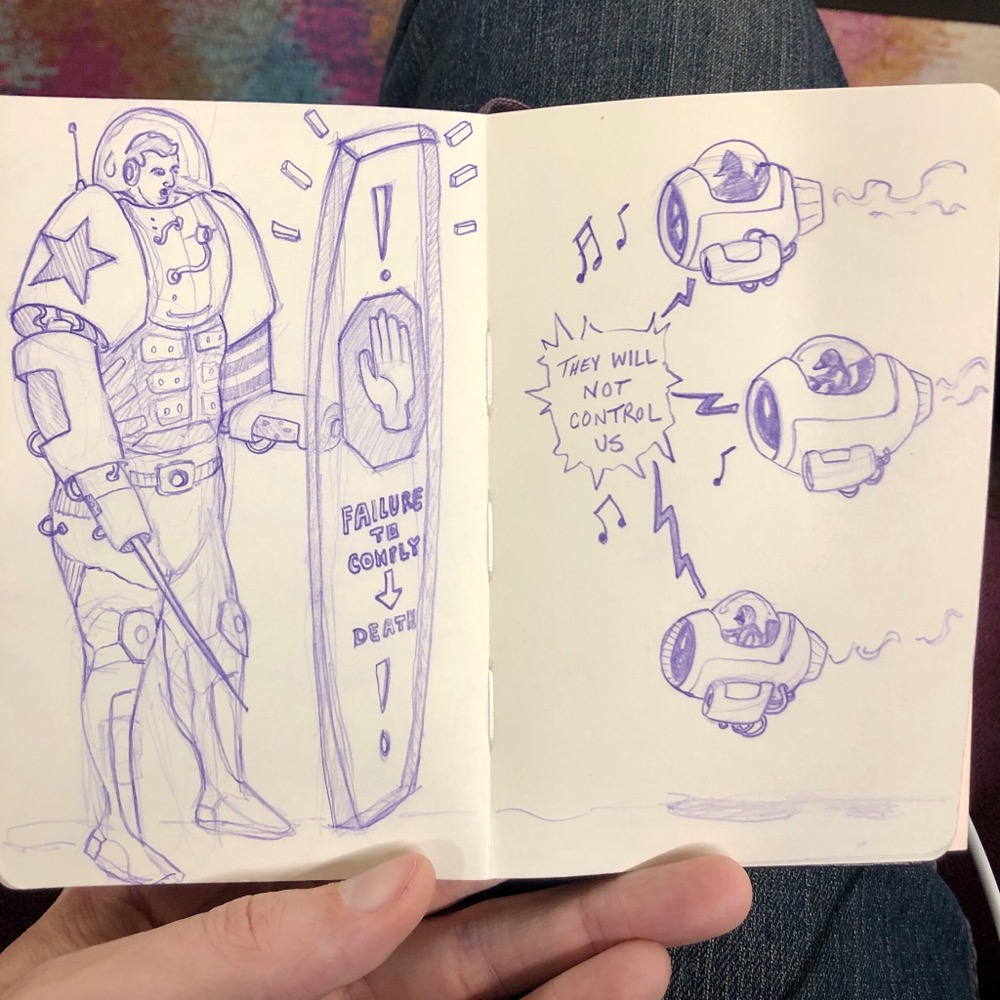 !
FAILURE
TO
COMPLY
↓
DEATH
!
THEY WILL
NOT
CONTROL
US